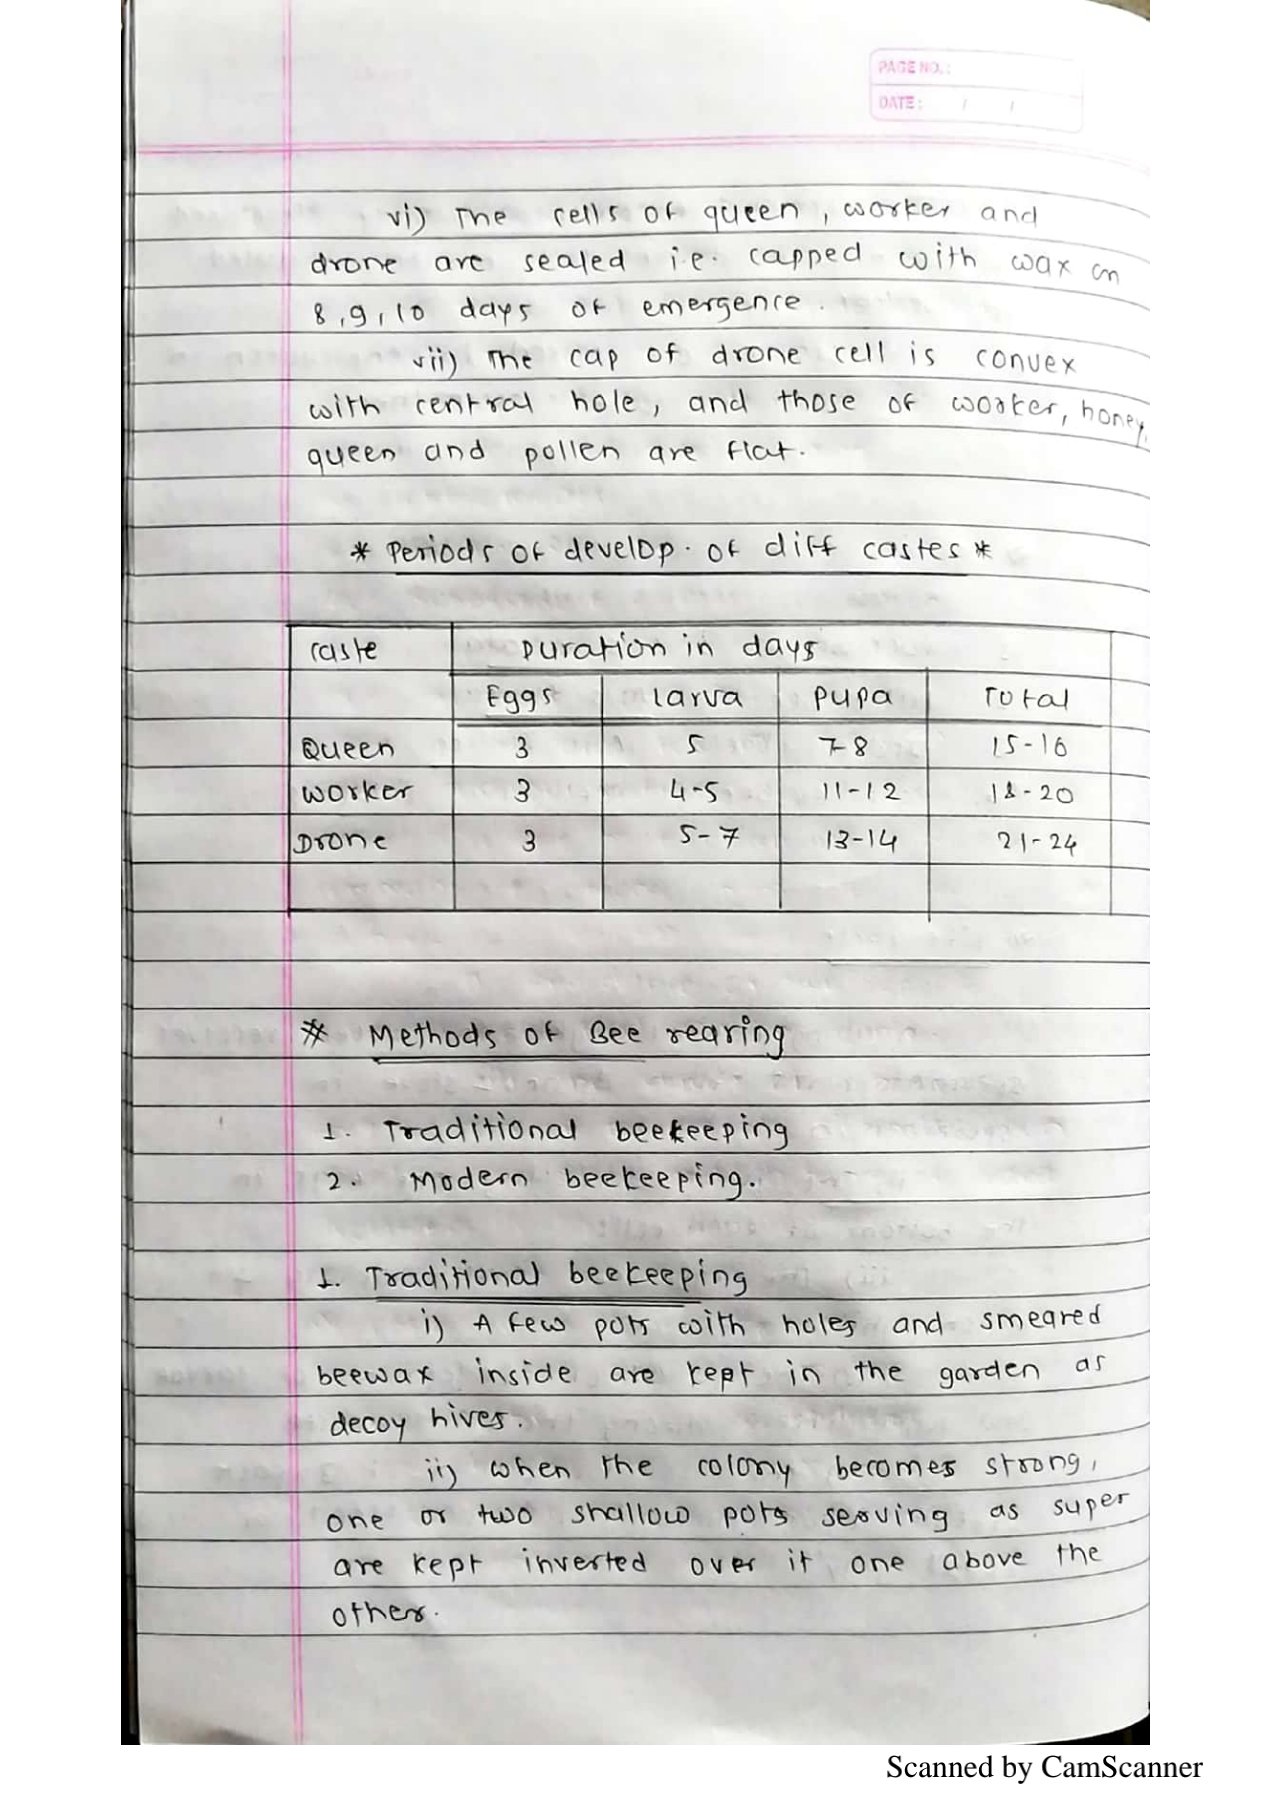 PAGE NO.:
DATE: / /
vi) The cells of queen, worker and
drone are sealed i.e. capped with wax on
8,9,10 days of emergence.
vii) The cap of drone cell is convex
with central hole, and those of worker, honey,
queen and pollen are flat.
* Periods of develop. of diff castes *
caste Duration in days
Eggs larva pupa Total
Queen 3 5 7-8 15-16
worker 3 4-5 11-12 18-20
Drone 3 5-7 13-14 21-24
* Methods of Bee rearing
1. Traditional beekeeping
2. Modern beekeeping.
1. Traditional beekeeping
i) A few pots with holes and smeared
beewax inside are kept in the garden as
decoy hives.
ii) when the colony becomes strong,
one or two shallow pots serving as super
are kept inverted over it one above the
other.
Scanned by CamScanner